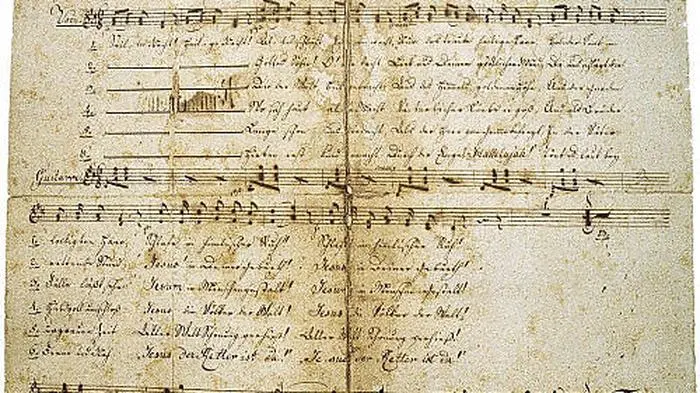 Voce.
1. Stille Nacht! Heilige Nacht! Alles schläft. Einsam wacht Nur das traute heilige Paar. Holder Knab' im
2. Gottes Sohn! O! wie lacht Lieb' aus Deinem göttlichen Mund, Da uns schlägt die
3. Die der Welt Heil gebracht, Aus des Himmels goldenen Höhn, Uns der Gnaden
4. Wo sich heut alle Macht Väterlicher Liebe ergoß, Und als Bruder
5. Lange schon uns bedacht, Als der Herr vom Grimme befreyt In der Väter
6. Hirten erst kundgemacht Durch der Engel Halleluja! Tönt es laut bey
Guitarre
1. lockigten Haar, Schlafe in himmlischer Ruh! Schlafe in himmlischer Ruh!
2. rettende Stund. Jesus! in Deiner Geburth! Jesus! in Deiner Geburth!
3. Fülle läßt seh'n Jesum in Menschengestalt! Jesum in Menschengestalt!
4. huldvoll umschloß Jesus die Völker der Welt! Jesus die Völker der Welt!
5. urgrauer Zeit Aller Welt Schonung verhieß! Aller Welt Schonung verhieß!
6. Ferne und nah "Jesus der Retter ist da!" "Jesus der Retter ist da!"